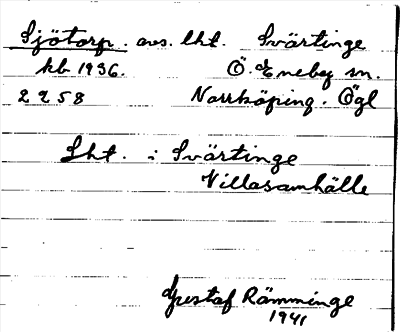 Sjötorp. avs. lht. Svärtinge
kb 1936. Ö. Eneby sn.
2958 Norrköping. Ögl
Lht. i Svärtinge
Villasamhälle
Gustaf Rämminge
1941